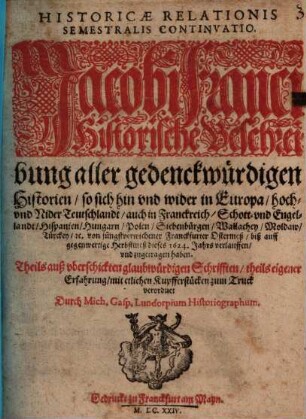 HISTORICÆ RELATIONIS
SEMESTRALIS CONTINVATIO.
Jacobi Franci
Historische Beschrei
bung aller gedenckwürdigen
Historien / so sich hin vnd wider in Europa / hoch-
vnd Nider Teutschlandt / auch in Franckreich / Schott- vnd Engel-
landt / Hispanien / Hungarn / Polen / Siebenbürgen / Wallachey / Moldaw /
Türckey / ꝛc. von jüngstverwichener Franckfurter Ostermeß / biß auff
gegenwertige Herbstmeß dieses 1624. Jahrs verlauffen /
vnd zugetragen haben.
Theils auß vberschickten glaubwürdigen Schrifften / theils eigener
Erfahrung / mit etlichen Kupfferstücken zum Truck
verordnet
Durch Mich. Casp. Lundorpium Historiographum.
Gedruckt zu Franckfurt am Mayn.
M. DC. XXIV.